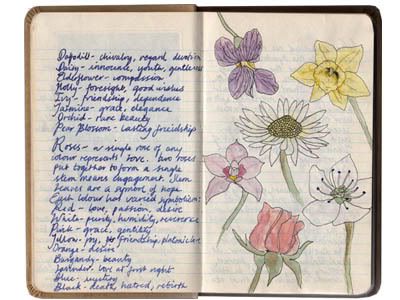 Daffodil - chivalry, regard, devotion
Daisy - innocence, youth, gentleness
Elderflower - compassion
Holly - foresight, good wishes
Ivy - friendship, dependence
Jasmine - grace, elegance
Orchid - rare beauty
Pear Blossom - lasting friendship
Roses - a single rose of any
colour represents love. two roses
put together to form a single
stem means engagement. Stem
leaves are a symbol of hope.
Each colour has varied symbolism:
Red - love, passion, desire
White - purity, humidity, reverence
Pink - grace, gentility
Yellow - joy, friendship, platonic love
Orange - desire
Burgandy - beauty
Lavender - love at first sight
Blue - mystery
Black - death, hatred, rebirth